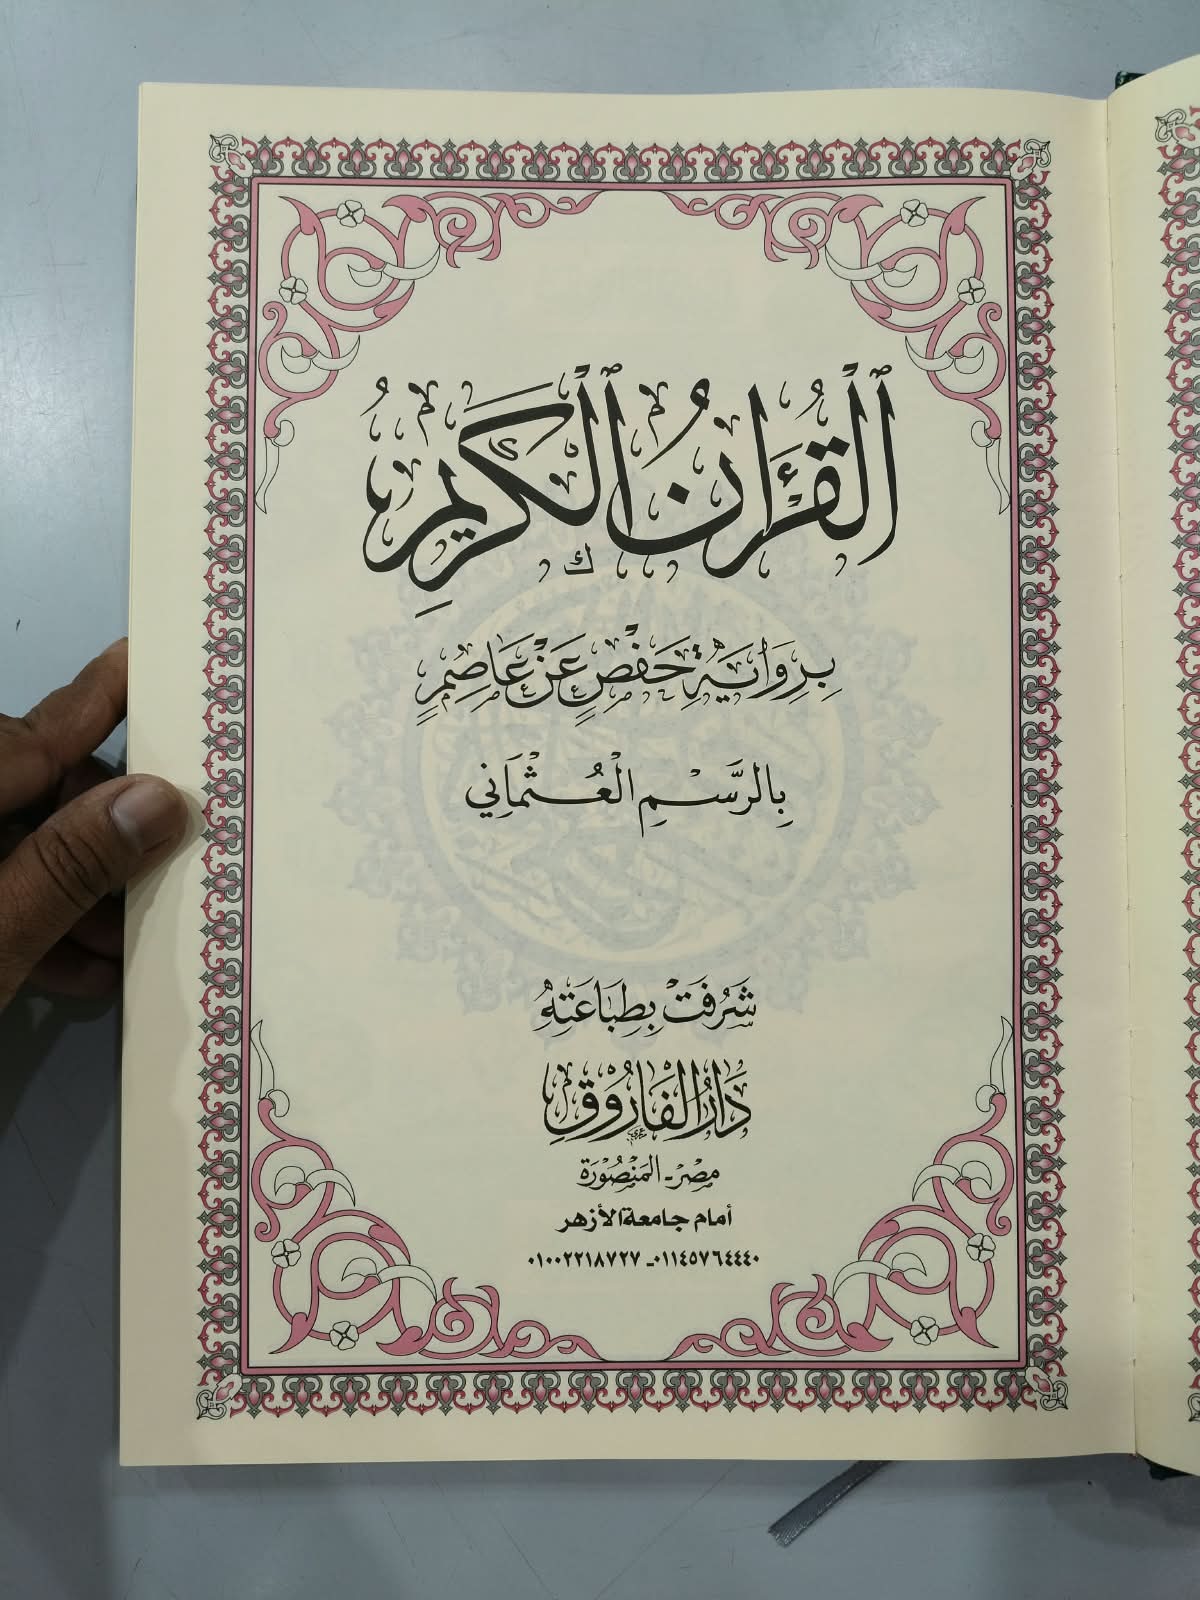 ٱلْقُرْءَانُ ٱلْكَرِيمُ
بِرِوَايَةِ حَفْصٍ عَنْ عَاصِمٍ
بِالرَّسْمِ الْعُثْمَانِي
شَرُفَتْ بِطِبَاعَتِهُ
دَارُ الْفَارُوقِ
مِصْرَ - المَنْصُورَة
أمام جامعة الأزهر
٠١١٤٥٧٦٤٤٤٠ - ٠١٠٠٢٢١٨٧٢٧